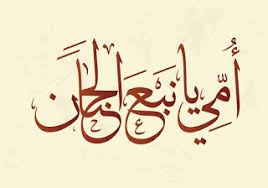 أُمّي يا نبعَ الحنان